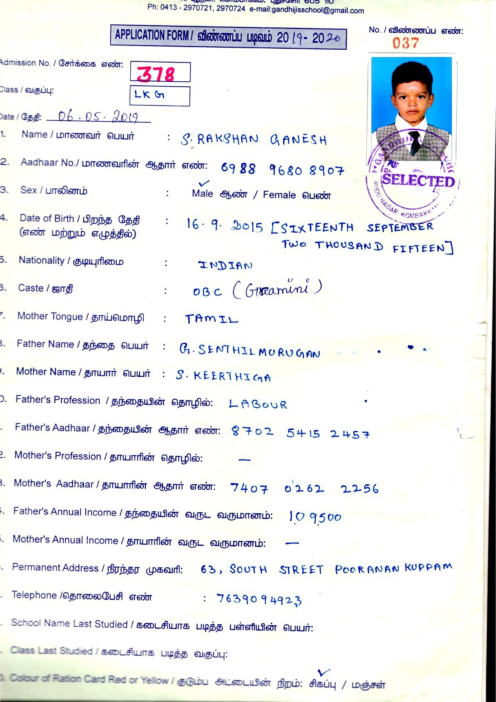 Ph: 0413 - 2970721, 2970724 e-mail:gandhijisschool@gmail.com
APPLICATION FORM / விண்ணப்ப படிவம் 2019- 2020
No. / விண்ணப்ப எண்:
037
Admission No. / சேர்க்கை எண்: 378
Class / வகுப்பு: LKG
Date / தேதி: 06.05.2019
1. Name / மாணவர் பெயர் : S. RAKSHAN GANESH
2. Aadhaar No./ மாணவரின் ஆதார் எண்: 6988 9680 8907
SELECTED
3. Sex / பாலினம் : Male ஆண் / Female பெண்
4. Date of Birth / பிறந்த தேதி : 16. 9. 2015 [SIXTEENTH SEPTEMBER
(எண் மற்றும் எழுத்தில்) TWO THOUSAND FIFTEEN]
5. Nationality / குடியுரிமை : INDIAN
6. Caste / ஜாதி : OBC (Gramini)
7. Mother Tongue / தாய்மொழி : TAMIL
8. Father Name / தந்தை பெயர் : G. SENTHILMURUGAN
9. Mother Name / தாயார் பெயர் : S. KEERTHIGA
0. Father's Profession / தந்தையின் தொழில்: LABOUR
. Father's Aadhaar / தந்தையின் ஆதார் எண்: 8702 5415 2457
2. Mother's Profession / தாயாரின் தொழில்: —
3. Mother's Aadhaar / தாயாரின் ஆதார் எண்: 7407 0262 2256
4. Father's Annual Income / தந்தையின் வருட வருமானம்: 109500
5. Mother's Annual Income / தாயாரின் வருட வருமானம்: —
. Permanent Address / நிரந்தர முகவரி: 63, SOUTH STREET POORANAN KUPPAM
. Telephone /தொலைபேசி எண் : 7639094923
. School Name Last Studied / கடைசியாக படித்த பள்ளியின் பெயர்:
. Class Last Studied / கடைசியாக படித்த வகுப்பு:
. Colour of Ration Card Red or Yellow / குடும்ப அட்டையின் நிறம்: சிகப்பு / மஞ்சள்